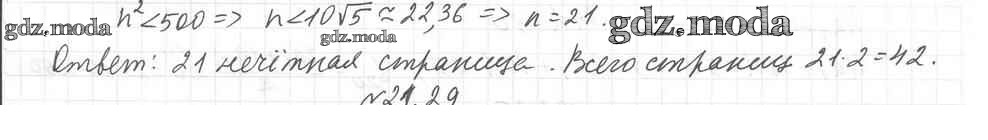 n² < 500 => n < 10√5 ≈ 22,36 => n = 21.
gdz.moda
gdz.moda
gdz.moda
Ответ: 21 нечётная страница. Всего страниц 21·2=42.
№21.29